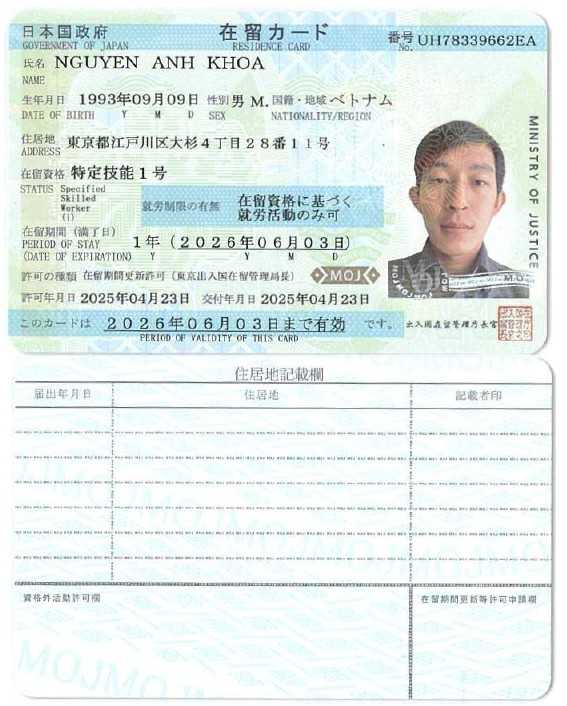 日本国政府 在留カード 番号 UH78339662EA
GOVERNMENT OF JAPAN RESIDENCE CARD No.
氏名 NGUYEN ANH KHOA
NAME
生年月日 1993年09月09日 性別 男 M. 国籍・地域 ベトナム
DATE OF BIRTH Y M D SEX NATIONALITY/REGION
住居地 東京都江戸川区大杉4丁目28番11号
ADDRESS
在留資格 特定技能1号
STATUS Specified
Skilled
Worker
(i)
就労制限の有無 在留資格に基づく
就労活動のみ可
在留期間(満了日) 1年(2026年06月03日)
PERIOD OF STAY
(DATE OF EXPIRATION) Y M D
許可の種類 在留期間更新許可(東京出入国在留管理局長) MOJ
許可年月日 2025年04月23日 交付年月日 2025年04月23日
このカードは 2026年06月03日まで有効 です。
PERIOD OF VALIDITY OF THIS CARD
出入国在留管理庁長官
MINISTRY OF JUSTICE
住居地記載欄
届出年月日 住居地 記載者印
資格外活動許可欄 在留期間更新等許可申請欄
MOJMOJMOJ